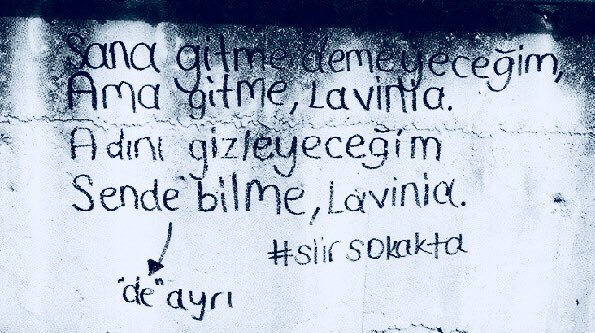 Sana gitme demeyeceğim,
Ama gitme, Lavinia.
Adını gizleyeceğim
Sende bilme, Lavinia.
#siirsokakta
"de" ayrı